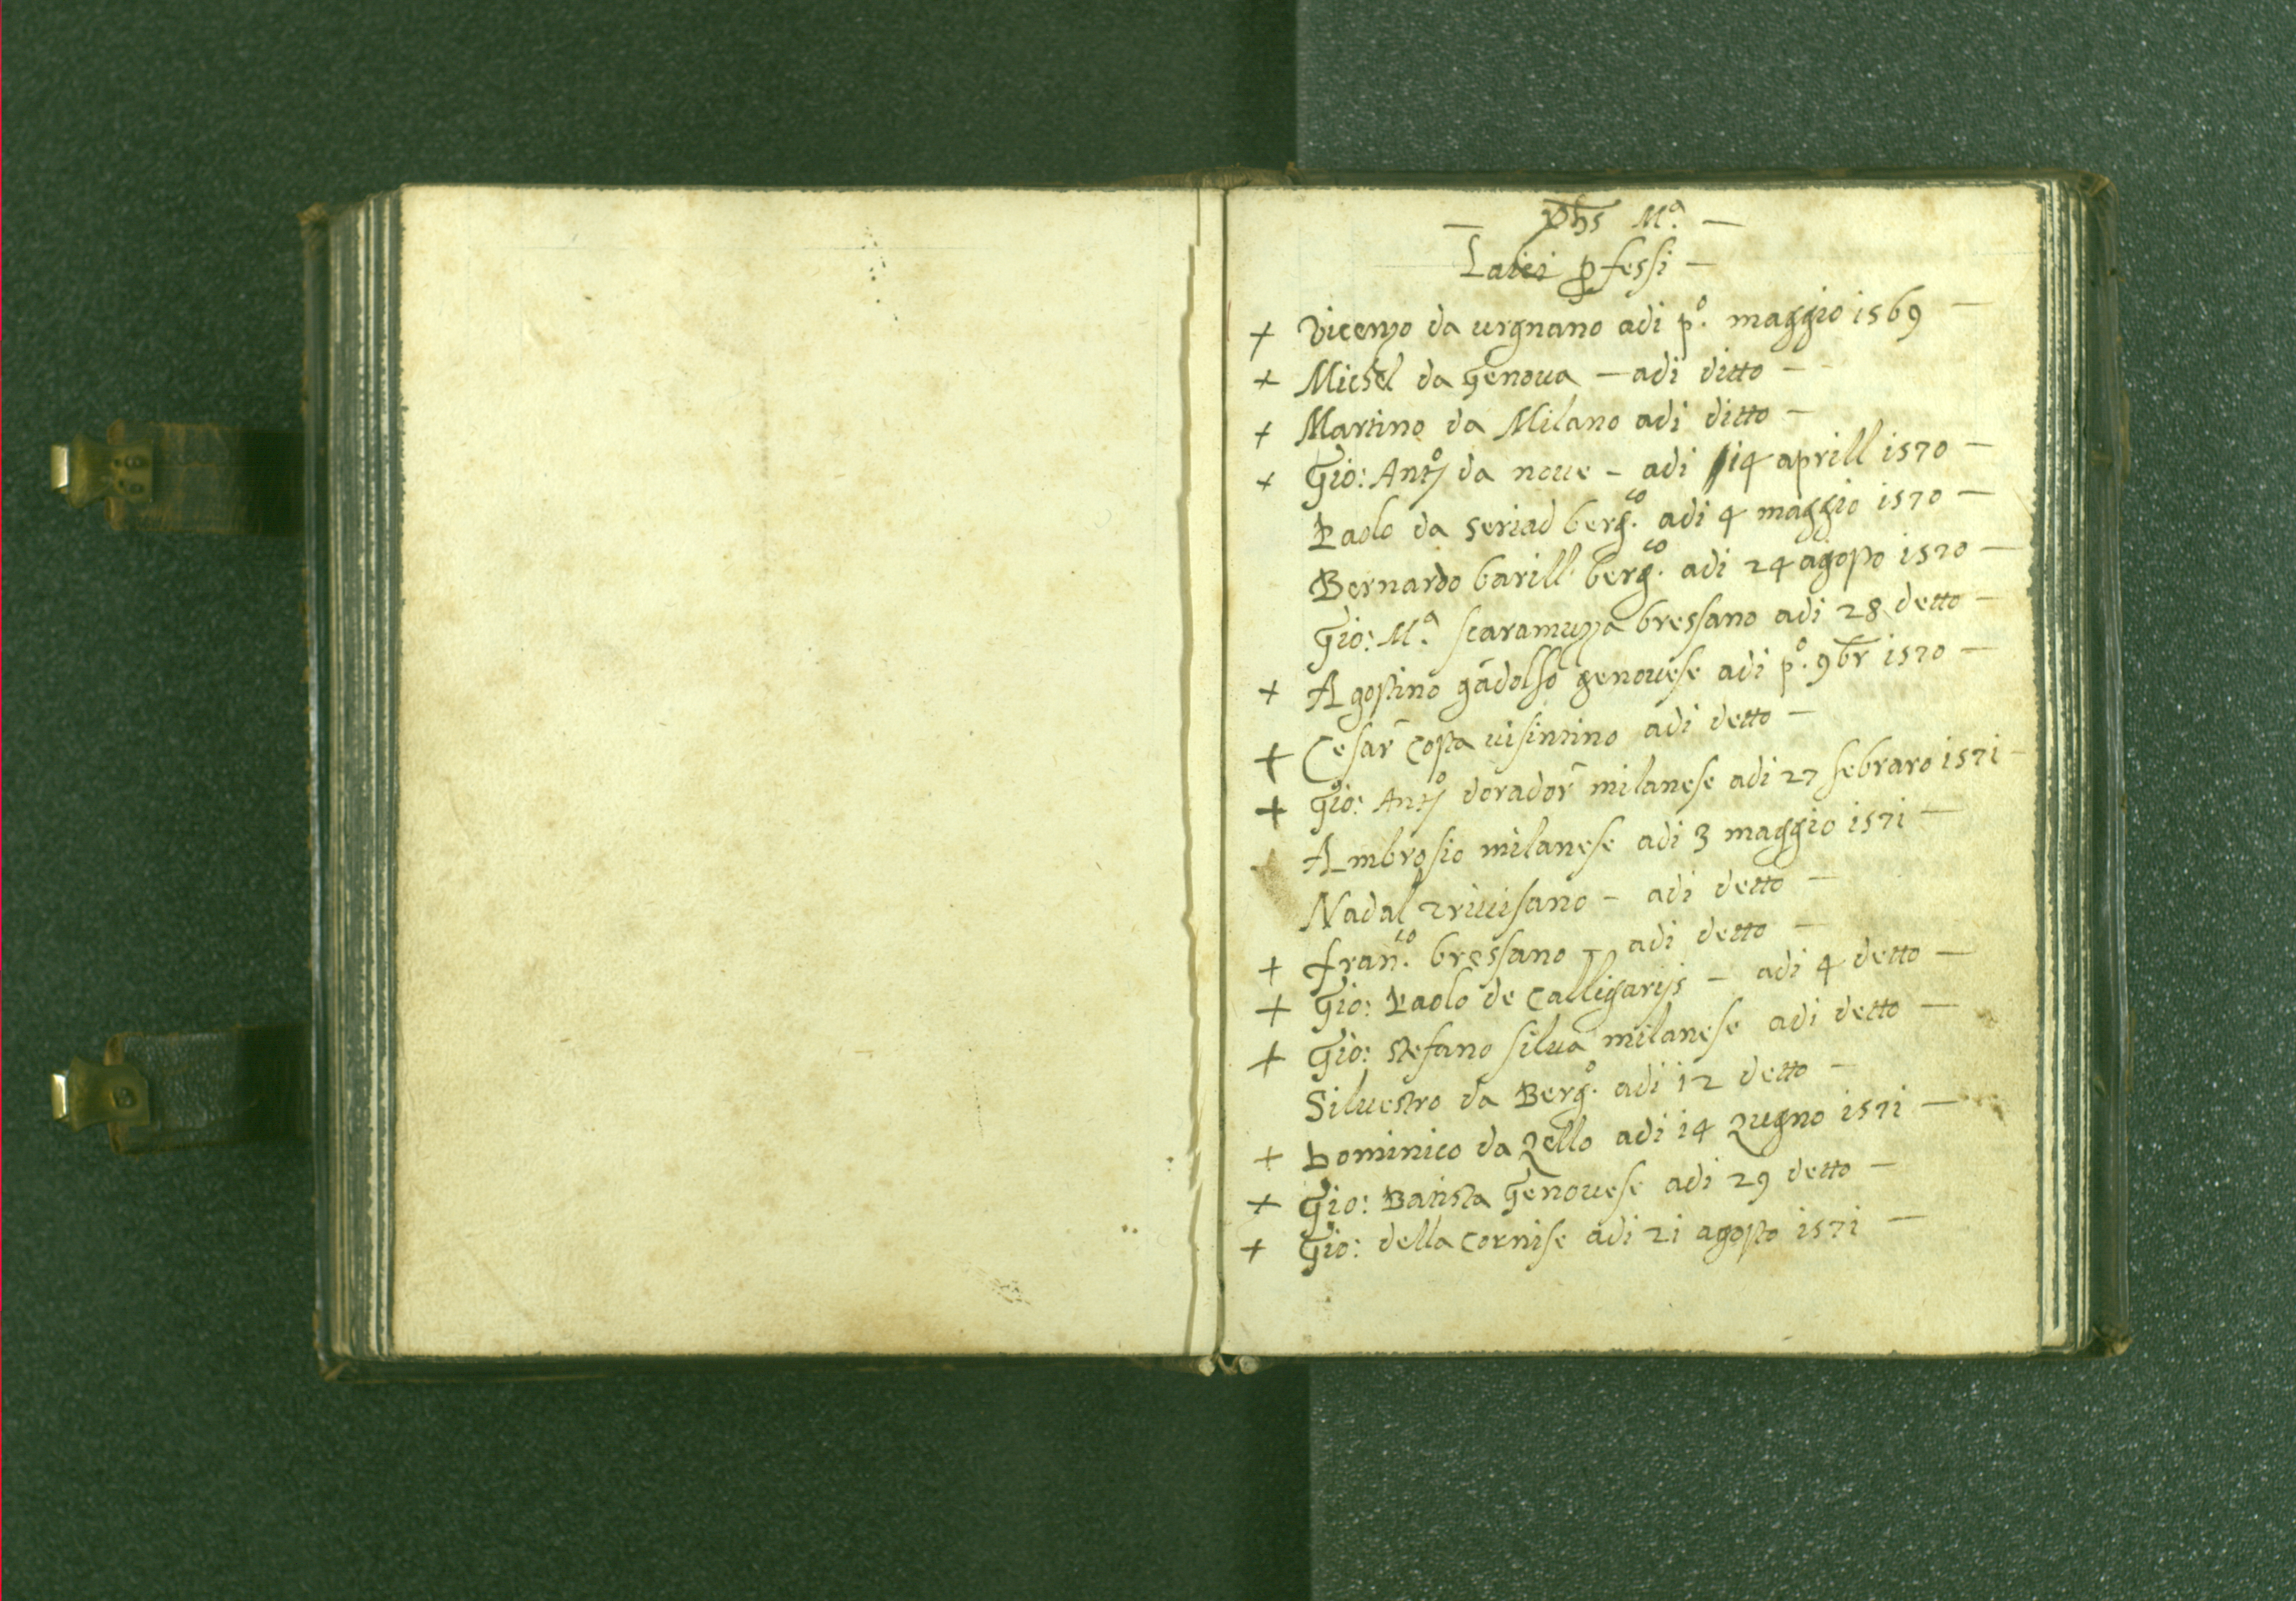 — yhs Mª. —
Laici pfessi —
+ Vicenzo da urgnano adi pº. maggio 1569 —
+ Michel da Genoua — adi ditto —
+ Martino da Milano adi ditto —
+ Gio: Antº da noue — adi 14 aprill 1570 —
Paolo da seriad bergco. adi 4 maggio 1570 —
Bernardo barill. bergco. adi 24 agosto 1570 —
Gio: Mª. scaramuzza bressano adi 28 detto —
+ Agostino gādolfo genouese adi pº. 9br 1570 —
+ Cesar costa uisintino adi detto —
+ Gio: Antº dorador milanese adi 27 febraro 1571 —
Ambrosio milanese adi 3 maggio 1571 —
Nadal triuisano — adi detto —
+ franco. bressano — adi detto —
+ Gio: Paolo de Calligarijs — adi 4 detto —
+ Gio: stefano silua milanese adi detto —
Siluestro da Bergº. adi 12 detto —
+ Dominico da Zello adi 14 Zugno 1571 —
+ Gio: Batista Genouese adi 29 detto —
+ Gio: della cornise adi 21 agosto 1571 —